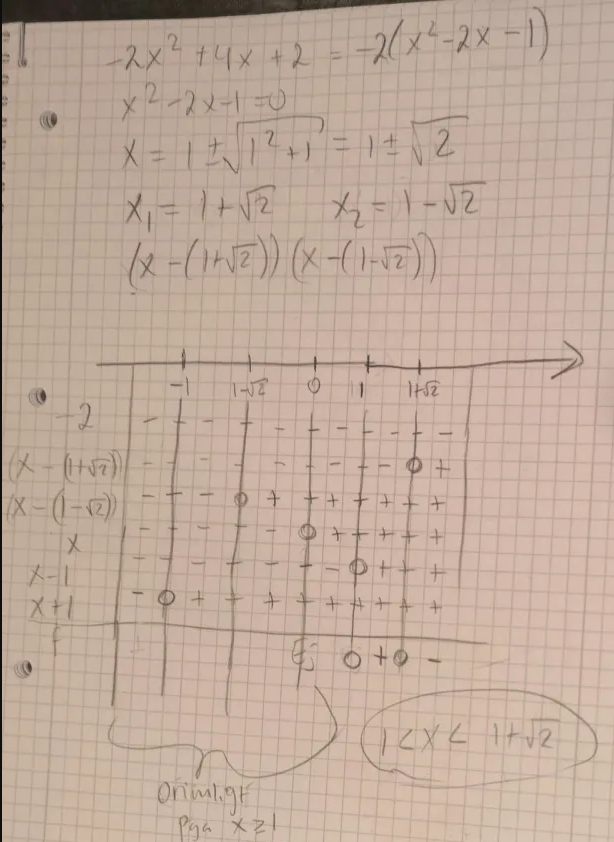 -2x² + 4x + 2 = -2(x² - 2x - 1)
x² - 2x - 1 = 0
x = 1 ± √(1² + 1) = 1 ± √2
x₁ = 1 + √2 x₂ = 1 - √2
(x - (1+√2)) (x - (1-√2))
-1 1-√2 0 1 1+√2
-2 - + - + - + - + - + -
(x - (1+√2)) - - - - - - - - - 0 +
(x - (1-√2)) - - - 0 + + + + + + +
x - - - - - 0 + + + + +
x-1 - - - - - - - 0 + + +
x+1 - 0 + + + + + + + + +
f 0 + 0 -
1 < x < 1+√2
Orimligt
pga x ≥ 1